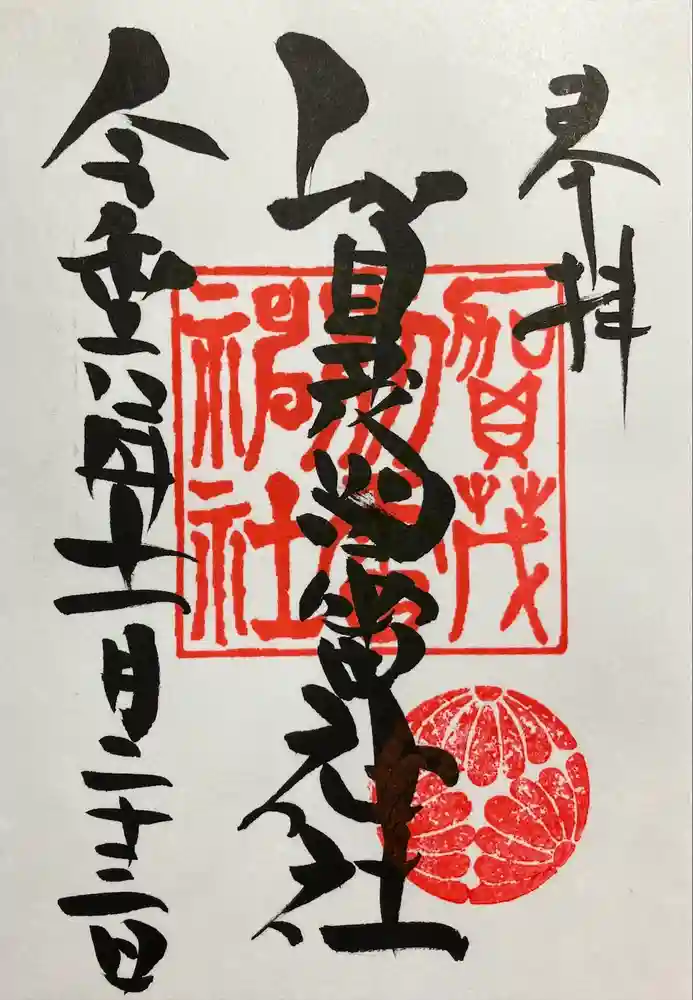 奉拝
賀茂別雷神社
賀茂
別雷
神社
令和年十一月二十三日